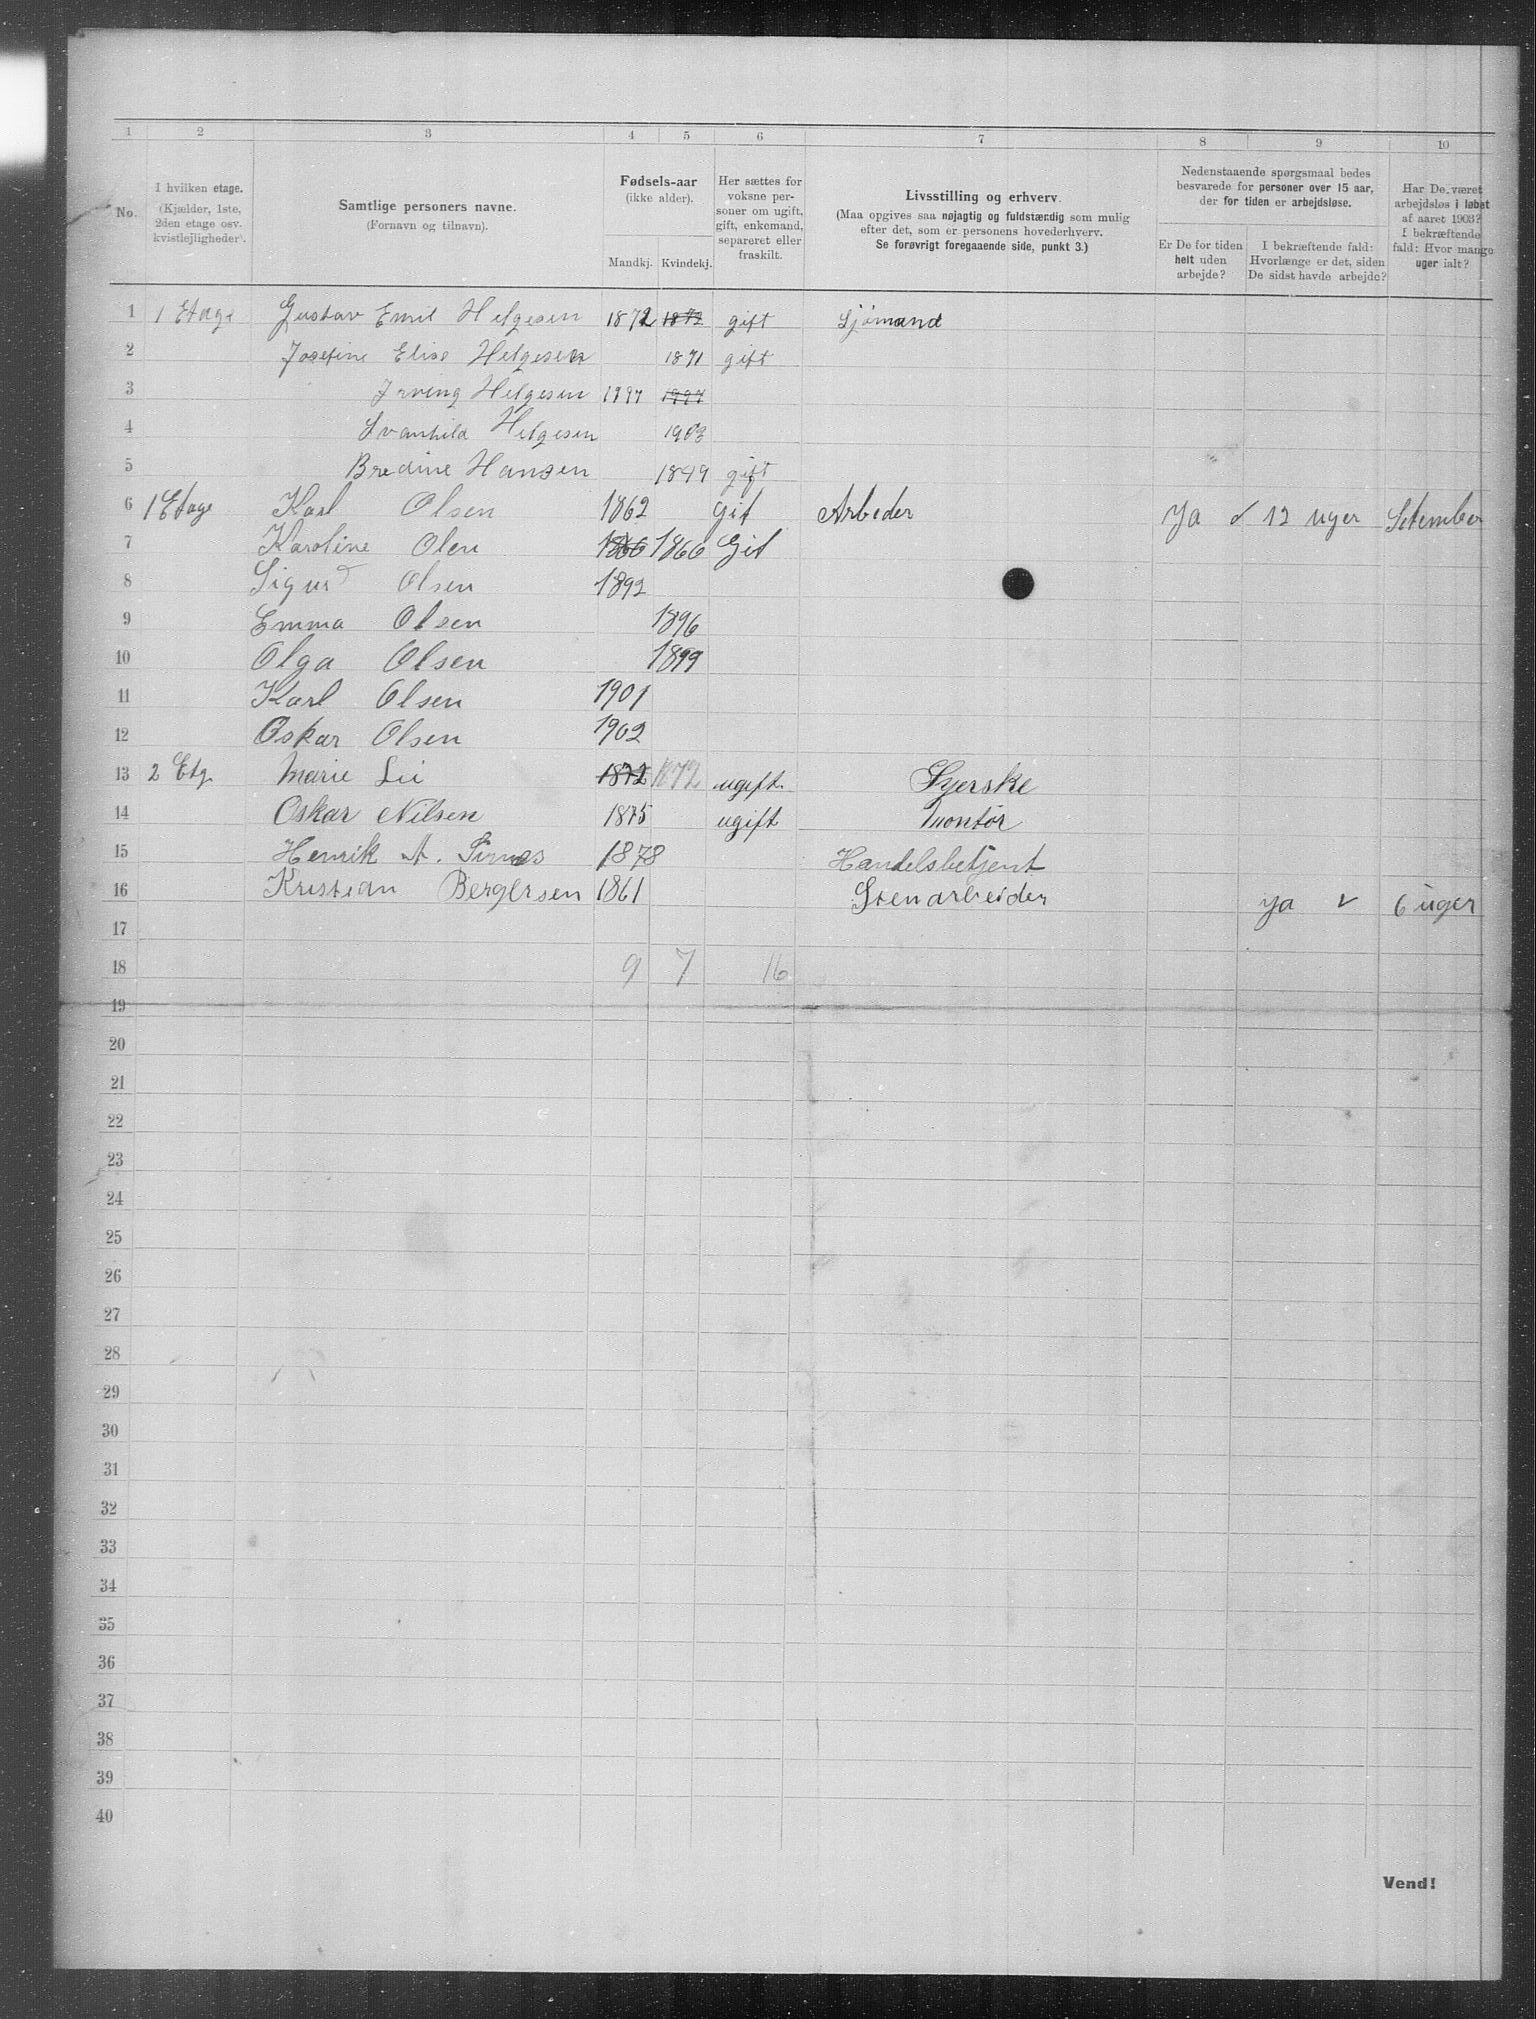 1 2 3 4 5 6 7 8 9 10
No.
I hvilken etage.
(Kjælder, 1ste,
2den etage osv.
kvistlejligheder).
Samtlige personers navne.
(Fornavn og tilnavn).
Fødsels-aar
(ikke alder).
Mandkj. Kvindekj.
Her sættes for
voksne per-
soner om ugift,
gift, enkemand,
separeret eller
fraskilt.
Livsstilling og erhverv.
(Maa opgives saa nøjagtig og fuldstændig som mulig
efter det, som er personens hovederhverv.
Se forøvrigt foregaaende side, punkt 3.)
Nedenstaaende spørgsmaal bedes
besvarede for personer over 15 aar,
der for tiden er arbejdsløse.
Er De for tiden
helt uden
arbejde?
I bekræftende fald:
Hvorlænge er det, siden
De sidst havde arbejde?
Har De været
arbejdsløs i løbet
af aaret 1903?
I bekræftende
fald: Hvor mange
uger ialt?
1 1 Etage Gustav Emil Helgesen 1872 1872 gift Sjömand
2 Josefine Elise Helgesen 1871 gift
3 Irving Helgesen 1897 1897
4 Svanhild Helgesen 1903
5 Bredine Hansen 1849 gift
6 1 Etage Karl Olsen 1862 Git Arbeder Ja ✓ 12 uger Setember
7 Karoline Olen 1866 1866 Git
8 Sigurd Olsen 1892
9 Emma Olsen 1896
10 Olga Olsen 1899
11 Karl Olsen 1901
12 Oskar Olsen 1902
13 2 Etg. Marie Lii 1872 1872 ugift. Syerske
14 Oskar Nilsen 1875 ugift Montör
15 Henrik A. 1878 Handelsbetjent
16 Kristian Bergersen 1861 Stenarbeider ja ✓ 6 uger
17
18 9 7 16
19
20
21
22
23
24
25
26
27
28
29
30
31
32
33
34
35
36
37
38
39
40
Vend!